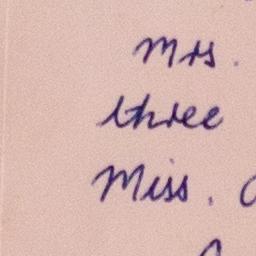 Mrs.
three
Miss.